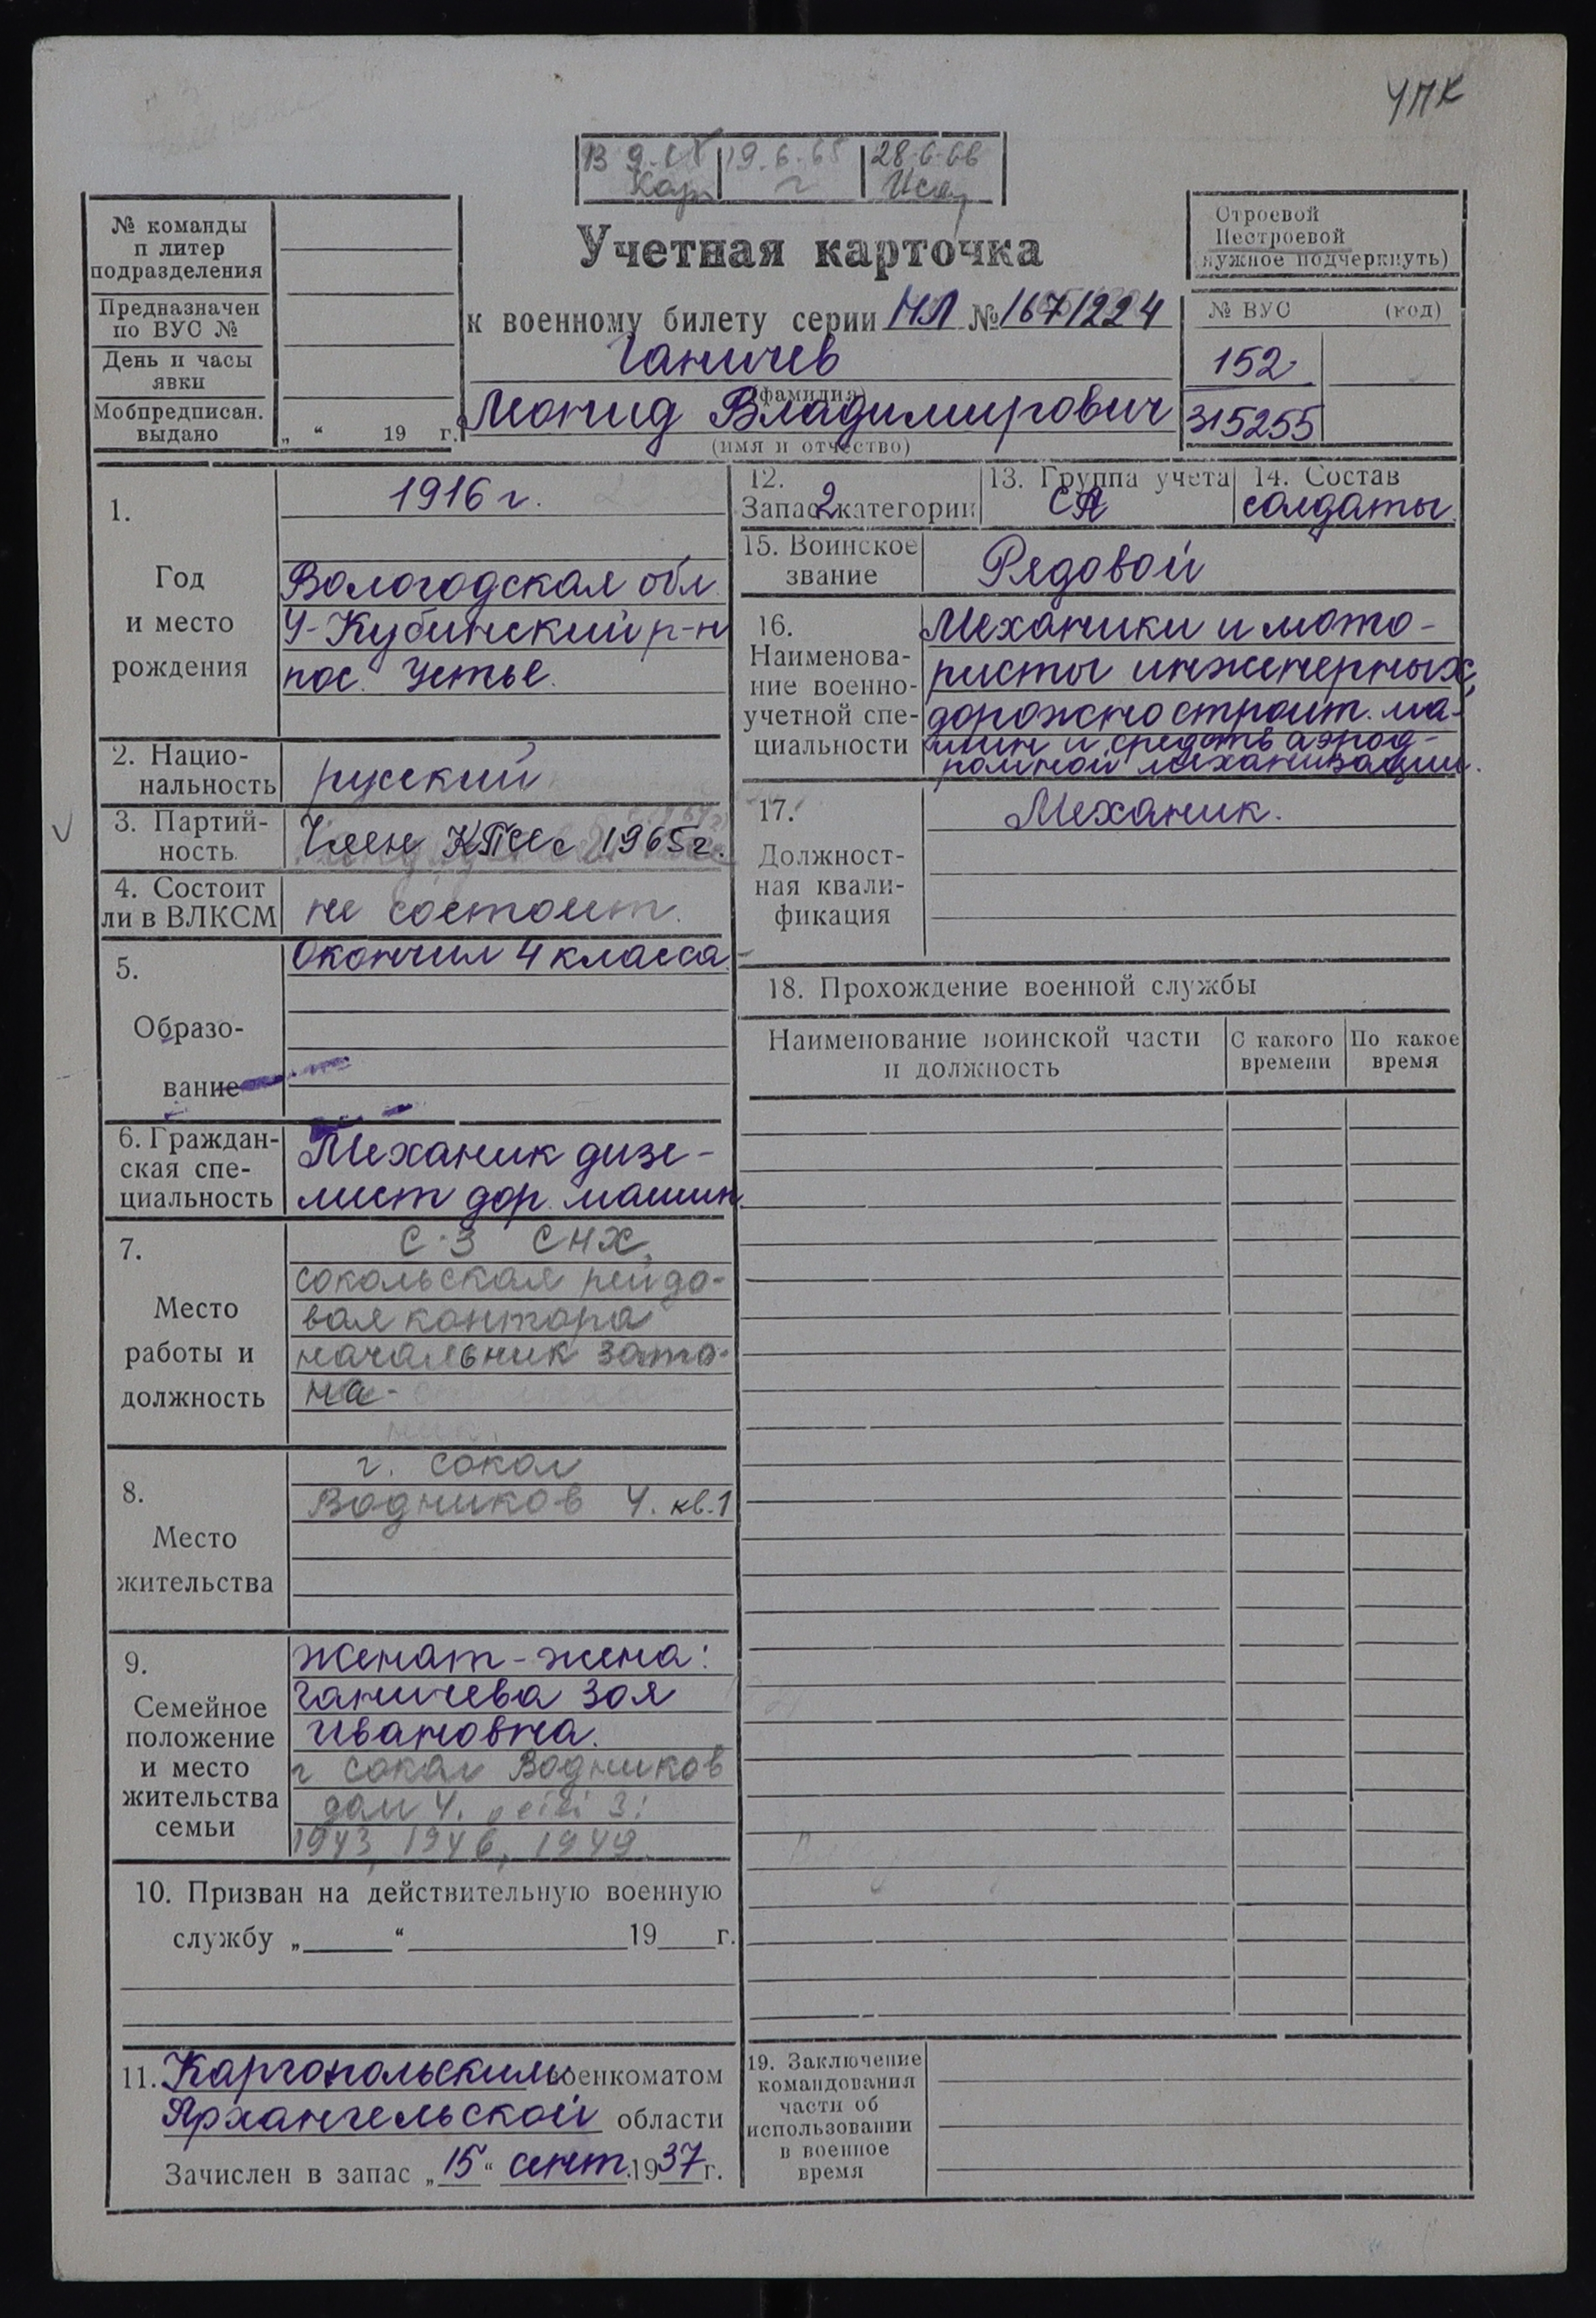 УПК
13 9.65 19.6.65 28.6.66
№ команды
и литер
подразделения
Предназначен
по ВУС №
День и часы
явки
Мобпредписан.
выдано „ “ 19 г.
Учетная карточка
к военному билету серии НЛ № 1671224
Ганичев
(фамилия)
Леонид Владимирович
(имя и отчество)
Строевой
Нестроевой
(нужное подчеркнуть)
№ ВУС (код)
152
315255
1.
Год
и место
рождения
1916 г.
Вологодская обл.
У-Кубинский р-н
пос. Устье.
2. Нацио-
нальность
русский
3. Партий-
ность
Член КПСС с 1965г.
4. Состоит
ли в ВЛКСМ
не состоит.
5.
Образо-
вание
Окончил 4 класса
6. Граждан-
ская спе-
циальность
Механик дизе-
лист дор. машин
7.
Место
работы и
должность
С-З СНХ,
сокольская рейдо-
вая контора
начальник зато-
на-
8.
Место
жительства
г. Сокол
Водников 4. кв.1
9.
Семейное
положение
и место
жительства
семьи
женат - жена:
Ганичева Зоя
Ивановна.
г Сокол Водников
дом 4. дети 3:
1943, 1946, 1949.
10. Призван на действительную военную
службу „ “ 19 г.
11. Каргопольским военкоматом
Архангельской области
Зачислен в запас „15“ сент. 1937 г.
12.
Запас 2 категории
13. Группа учета
СА
14. Состав
солдаты
15. Воинское
звание
Рядовой
16.
Наименова-
ние военно-
учетной спе-
циальности
Механики и мото-
ристы инженерных,
дорожно строит. ма-
шин и средств аэрод-
ромной механизации.
17.
Должност-
ная квали-
фикация
Механик.
18. Прохождение военной службы
Наименование воинской части
и должность
С какого
времени
По какое
время
19. Заключение
командования
части об
использовании
в военное
время